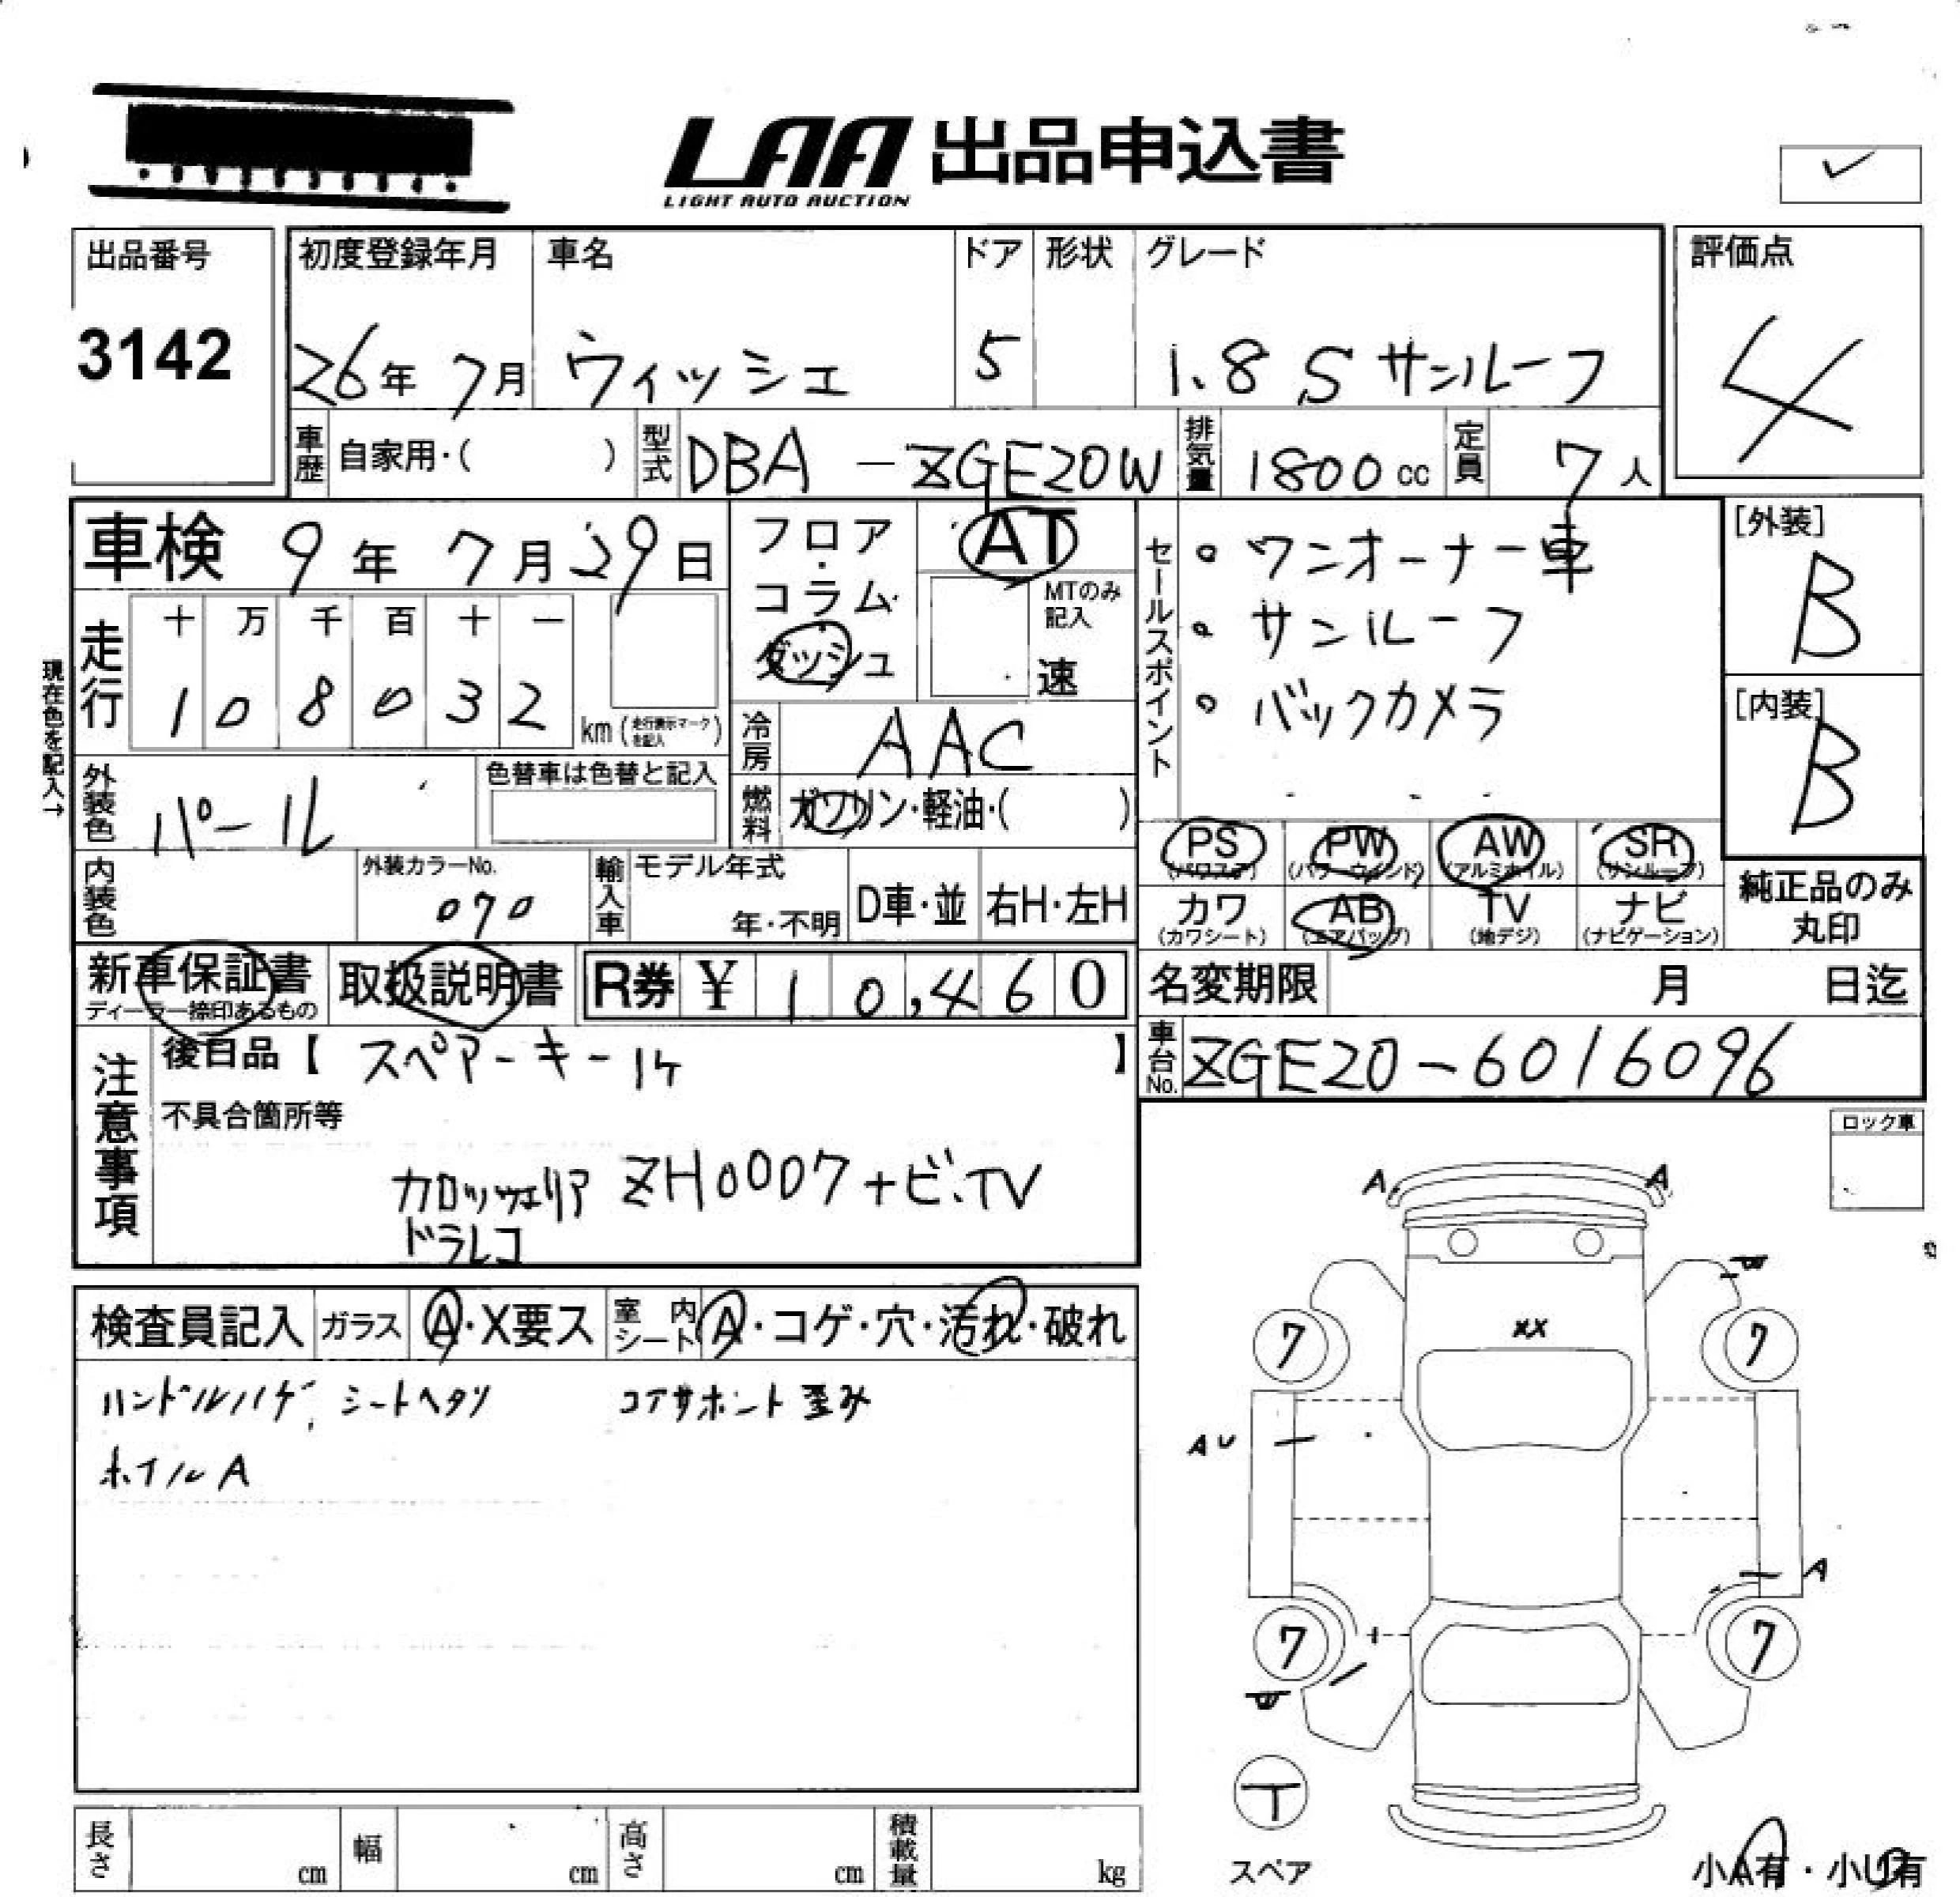 LAA 出品申込書
LIGHT AUTO AUCTION
✓
出品番号
3142
初度登録年月 車名 ドア 形状 グレード
26年 7月 ウィッシュ 5 1.8 S サンルーフ
評価点
4
車歴 自家用・( ) 型式 DBA-ZGE20W 排気量 1800cc 定員 7人
車検 9年 7月 29日
フロア・コラム・ダッシュ
AT
MTのみ記入
速
セールスポイント
・ワンオーナー車
・サンルーフ
・バックカメラ
[外装]
B
[内装]
B
現在色を記入→
走行
十 万 千 百 十 一
1 0 8 0 3 2
km(走行表示マークを記入)
冷房 AAC
外装色 パール
色替車は色替と記入
燃料 ガソリン・軽油・( )
PS (パワステ) PW (パワーウインド) AW (アルミホイル) SR (サンルーフ)
カワ (カワシート) AB (エアバッグ) TV (地デジ) ナビ (ナビゲーション)
純正品のみ丸印
内装色
外装カラーNo.
070
輸入車 モデル年式
年・不明 D車・並 右H・左H
新車保証書
ディーラー捺印あるもの
取扱説明書
R券 ¥ 10,460
名変期限 月 日迄
車台No. ZGE20-6016096
注意事項
後日品【 スペアーキー1ケ 】
不具合箇所等
カロッツェリア ZH0007ナビ.TV
ドラレコ
ロック車
検査員記入 ガラス A・X要ス 室内シート A・コゲ・穴・汚れ・破れ
ハンドルハゲ、シートヘタリ コアサポート歪み
ホイルA
A A
XX
7 7
AU
A
7 7
T
スペア
小A有・小U有
長さ cm 幅 cm 高さ cm 積載量 kg